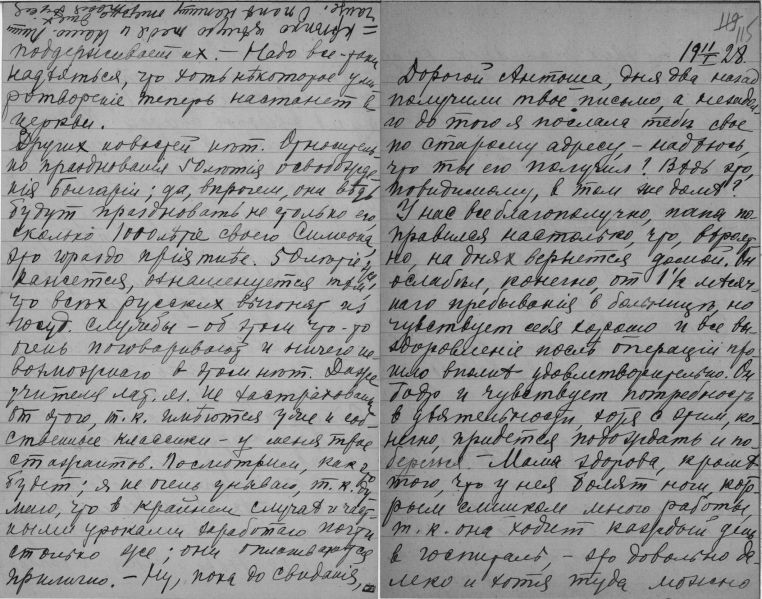 поддерживает их. – Надо все-таки
надѣяться, что хоть нѣкоторое уми
ротвореніе теперь настанет в
церкви.
Других новостей нѣт. Относитель-
но празднования 50-лѣтія освобожде
нія Болгаріи; да, впрочем, они ведь
будут праздновать не только его,
сколько 1000лѣтіе своего Симеона,
это гораздо пріятнѣе. 50-лѣтіе же,
кажется, ознаменуется тѣм,
что всѣх русских выгонят из
госуд. службы – об этом что-то
очень поговаривают и ничего не
возможнаго в этом нѣт. Даже
учителя лат. яз. не застрахованы
от этого, т.к. имѣются уже и соб-
ственные классики – у меня трое
стажантов. Посмотрим, как это
будет; я не очень унываю, т.к. ду-
маю, что в крайнем случаѣ и част
ными уроками заработаю почти
столько же; они оплачиваются
прилично. – Ну, пока до свиданія,
49
115
19 11/I 28.
Дорогой Антоша, дня два назад
получили твое письмо, а незадол
го до того я послала тебѣ свое
по старому адресу, – надѣюсь,
что ты его получил? Вѣдь это,
повидимому, в том же домѣ?
У нас все благополучно, папа по
правился настолько, что, вѣроят
но, на днях вернется домой. Он
ослабѣл, конечно, от 1½ мѣсяч-
наго пребыванія в больницѣ, но
чувствует себя хорошо и все вы-
здоровленіе послѣ операціи про-
шло вполнѣ удовлетворительно. Он
бодр и чувствует потребность
в дѣятельности, хотя с этим, ко-
нечно, придется подождать и по
беречься. – Мама здорова, кромѣ
того, что у нея болят ноги, кото-
рым слишком много работы,
т.к. она ходит каждый день
в госпиталь, – это довольно да-
леко и хотя туда можно